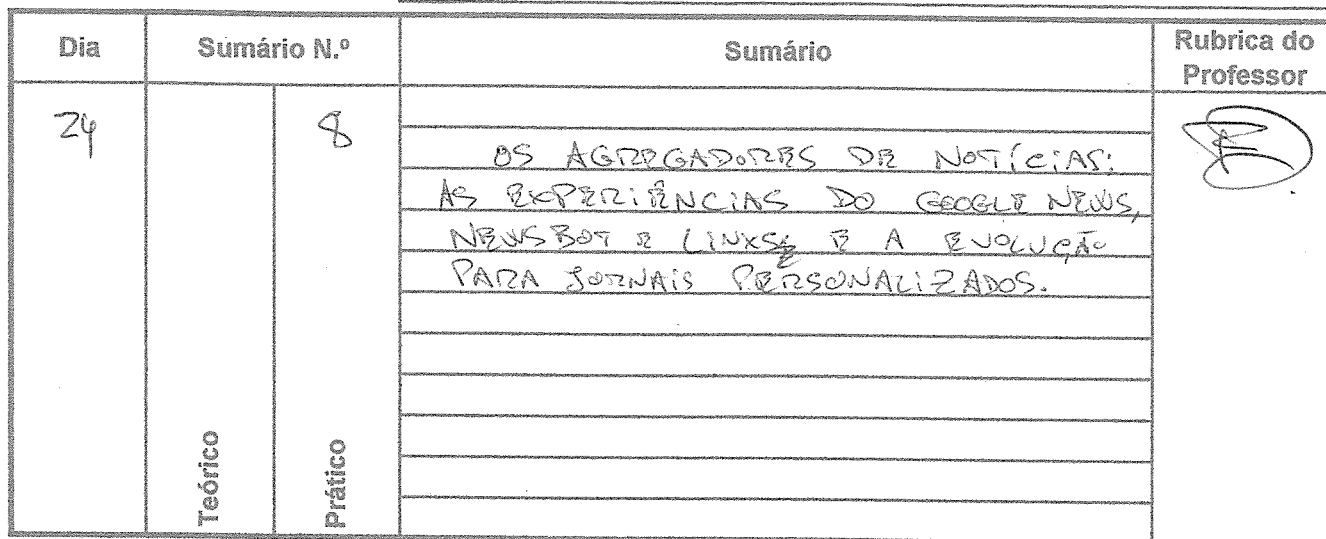 Dia Sumário N.º Sumário Rubrica do Professor
24 8
OS AGREGADORES DE NOTÍCIAS:
AS EXPERIÊNCIAS DO GOOGLE NEWS,
NEWSBOT E LINXS; E A EVOLUÇÃO
PARA JORNAIS PERSONALIZADOS.
Teórico
Prático